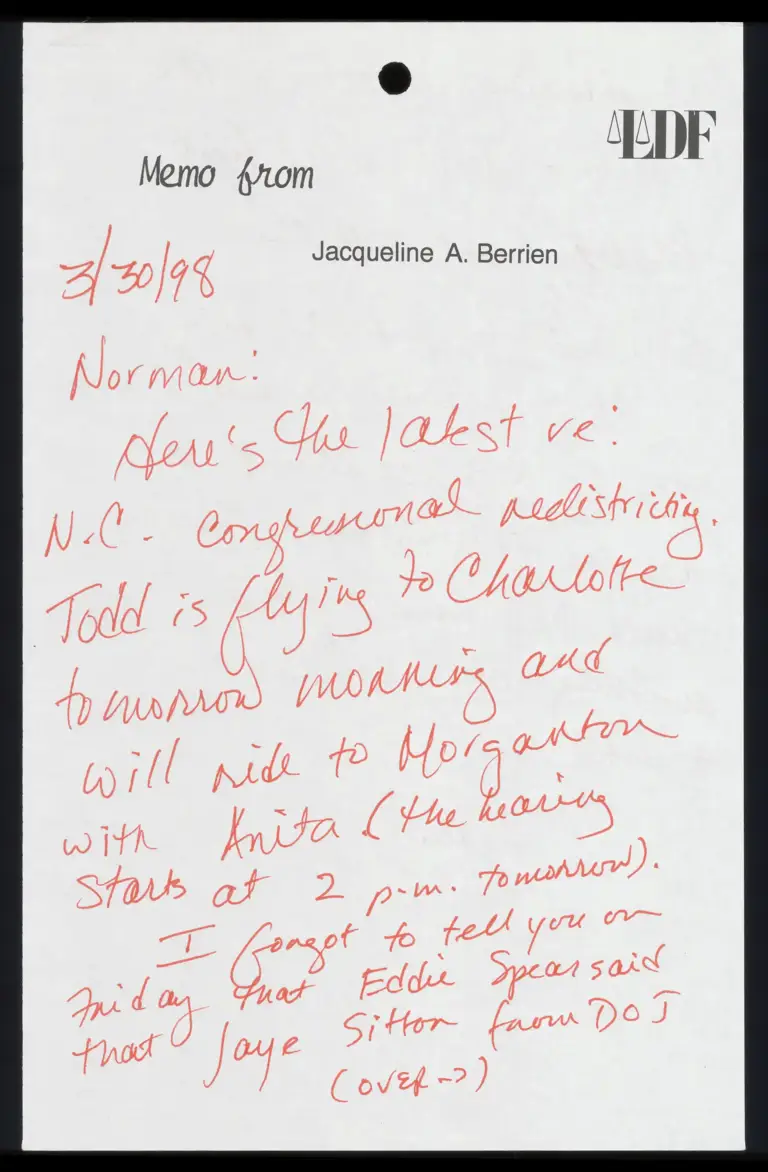 LDF
Memo from
Jacqueline A. Berrien
3/30/98
Norman:
Here's the latest re:
N.C. Congressional redistricting.
Todd is flying to Charlotte
tomorrow morning and
will ride to Morganton
with Anita (the hearing
starts at 2 p.m. tomorrow).
I forgot to tell you on
Friday that Eddie Spear said
that Jaye Sitton from DOJ
(over ->)